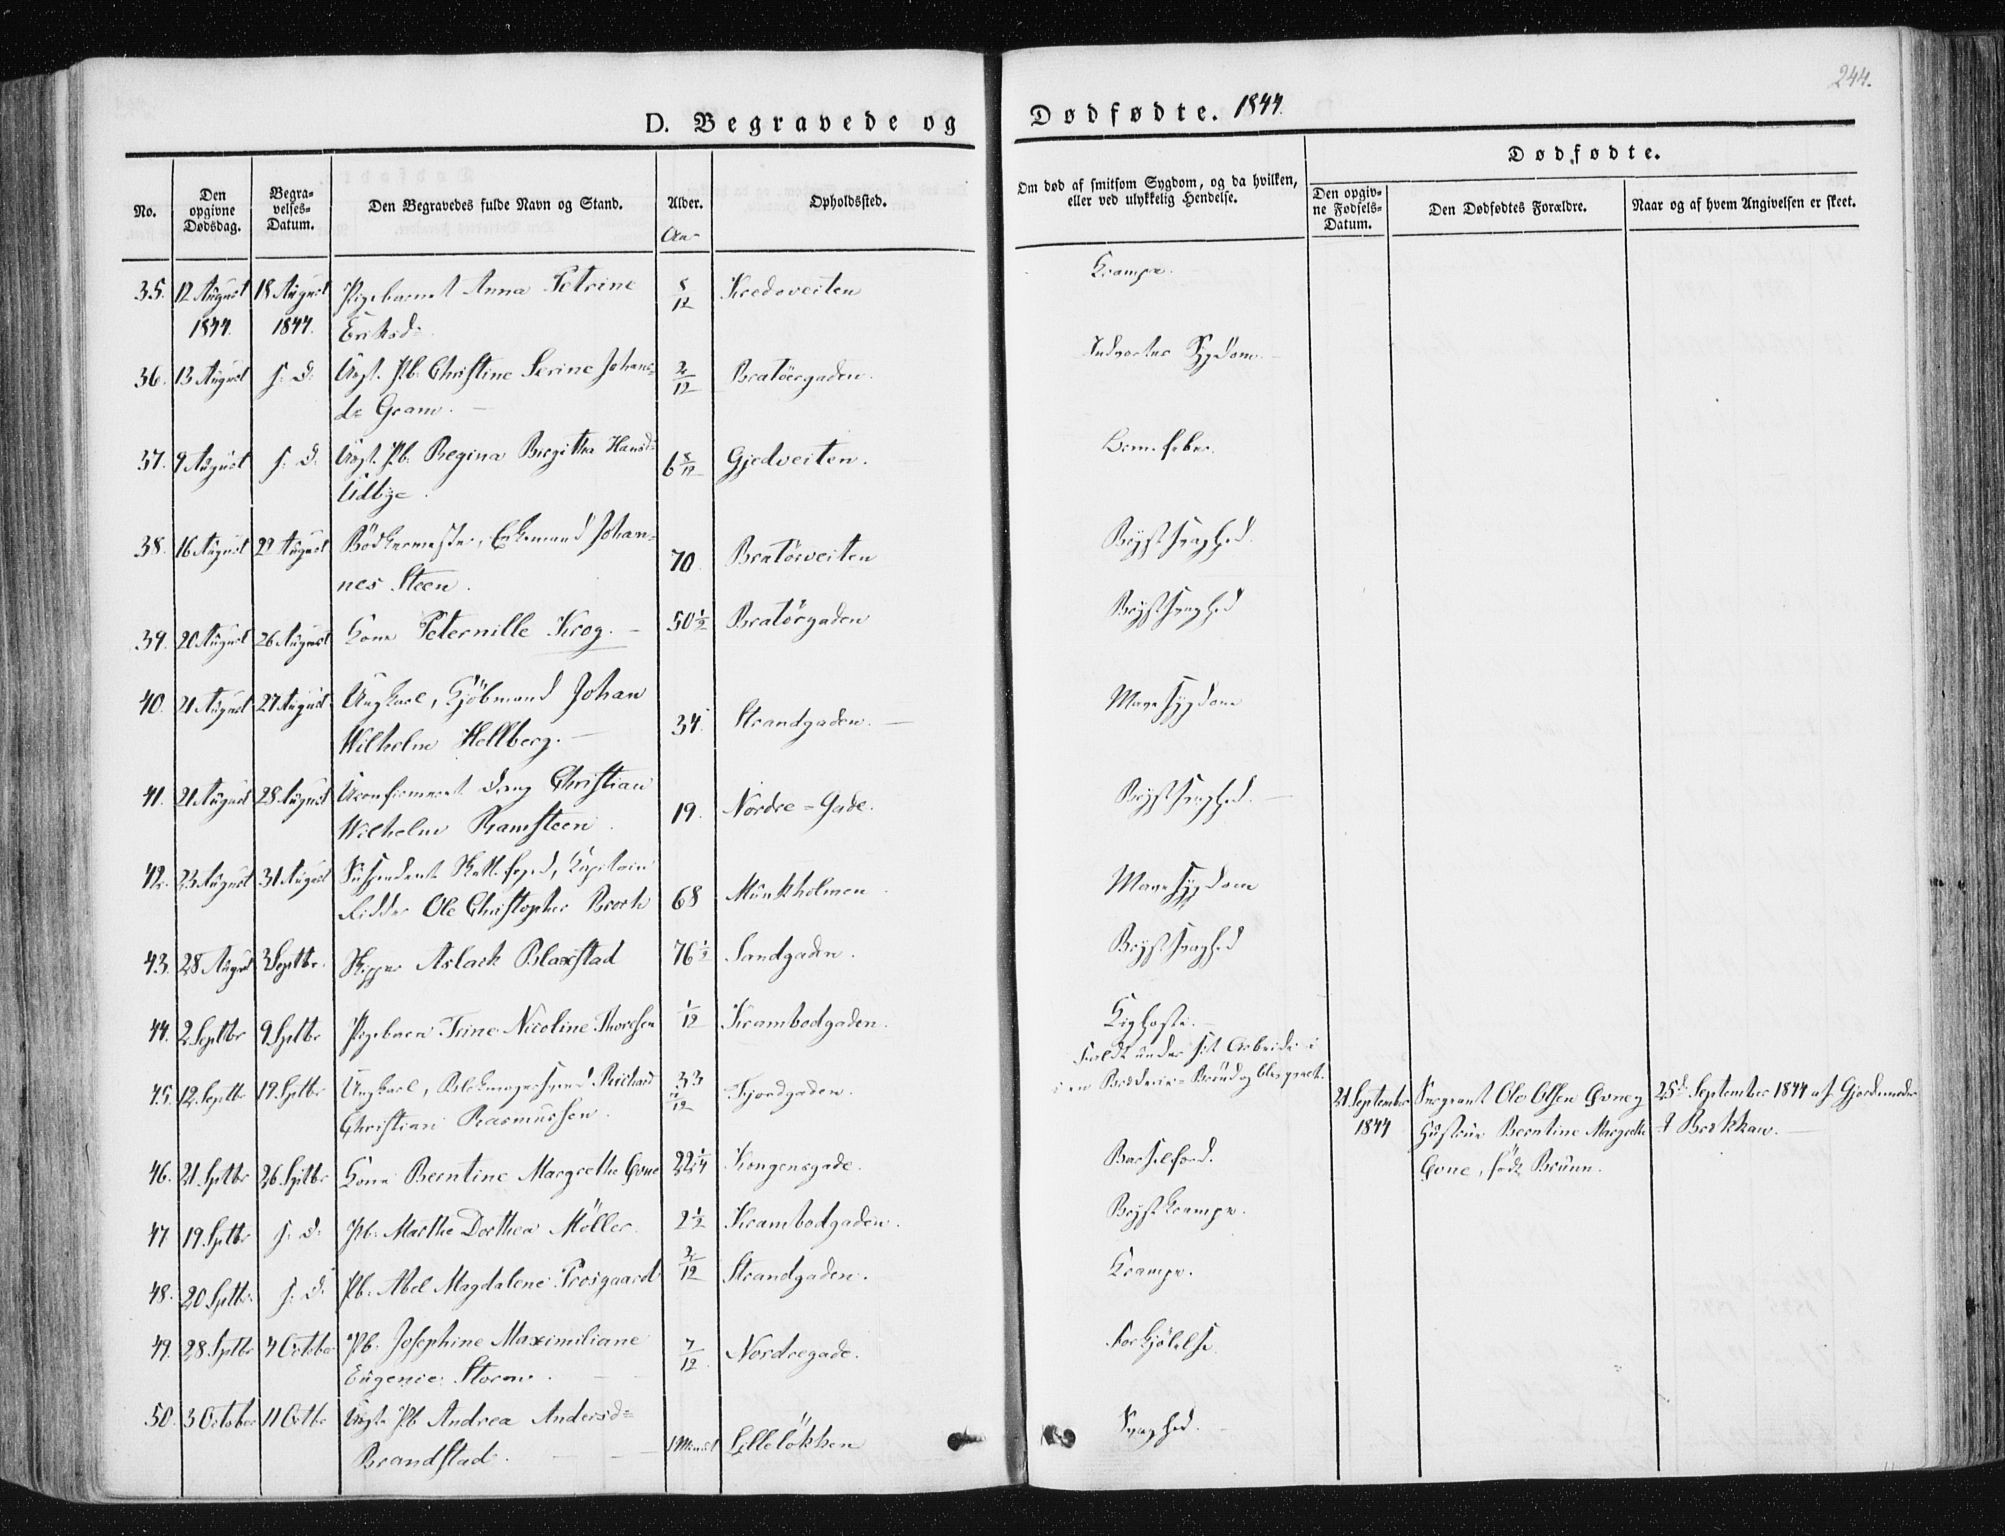 244.
D. Begravede og Dødfødte. 1844.
No.
Den opgivne Dødsdag.
Begravelses-Datum.
Den Begravedes fulde Navn og Stand.
Alder.
Opholdssted.
Om død af smitsom Sygdom, og da hvilken, eller ved ulykkelig Hendelse.
Dødfødte.
Den opgivne Fødsels-Datum.
Den Dødfødtes Forældre.
Naar og af hvem Angivelsen er skeet.
35. 12 August 18 August Pigebarnet Anna Petrine 5/12 Krampe.
1844. 1844. Eriksd:
36. 13 August s. D. Uægt. Pb. Christine Serine Johans= 2/12 Bratörgaden. Indvortes Sygdom.
dr Gram.
37. 9 August s. D. Uægt. Pb. Regina Birgitha Hansd= 6 8/12 Gjedveiten.
Udbye.
38. 16 August 22 August Bödkermester, Enkemand Johan= 70 Bratörveiten Brystsvaghed.
nes Steen.
39. 20 August 26 August Kone Peternille Krog. 50 1/2 Bratörgaden Brystsvaghed
40. 21 August 27 August Ungkarl, Kjöbmand Johan 34. Strandgaden. Mavesygdom
Wilhelm Hellberg.
41. 21 August 28 August Uconfirmeret Dreng Christian 19. Nordre=Gade. Brystsvaghed.
Wilhelm Ramsteen.
42. 23 August 31 August Capitain 68 Munkholmen Mavesygdom
Ridder Ole Christopher Broch
43. 28 August 3 Septbr. Skipper Aslack Blaxstad 76 1/2 Sandgaden. Brystsvaghed
44. 2 Septbr 9 Septbr Pigebarn Trine Nicoline Thoresen 1/12 Krambodgaden. Kighoste.
45. 12 Septbr 19 Septbr Ungkarl, Richard 33 /12 Fjordgaden. Faldt under sit Arbeide i
Christian Rasmussen.
21 September 1844 Sergeant Ole Olsen Gone og 25d. September 1844 af Gjordemoder
Hustrue Berntine Margrethe
Gone, född Bruun.
46. 21 Septbr 26 Septbr Kone Berntine Margrethe Gone 22 1/4 Kongensgade. Barselfærd.
47 19 Septbr s. D. Pb. Marthe Dorthea Möller. 2 1/2 Krambodgaden. Brystkrampe.
48. 20 Septbr. s. D. Pb. Abel Magdalene 2/12 Strandgaden. Krampe.
49. 28 Septbr 4 October Pb. Josephine Maximiliane 7/12 Nordregade. Forkjölelse.
Eugenie Storm.
50. 3 October 11 Octbr Uægte Pb Andrea Andersd= 1 Lillelökken Svaghed.
Brandstad.